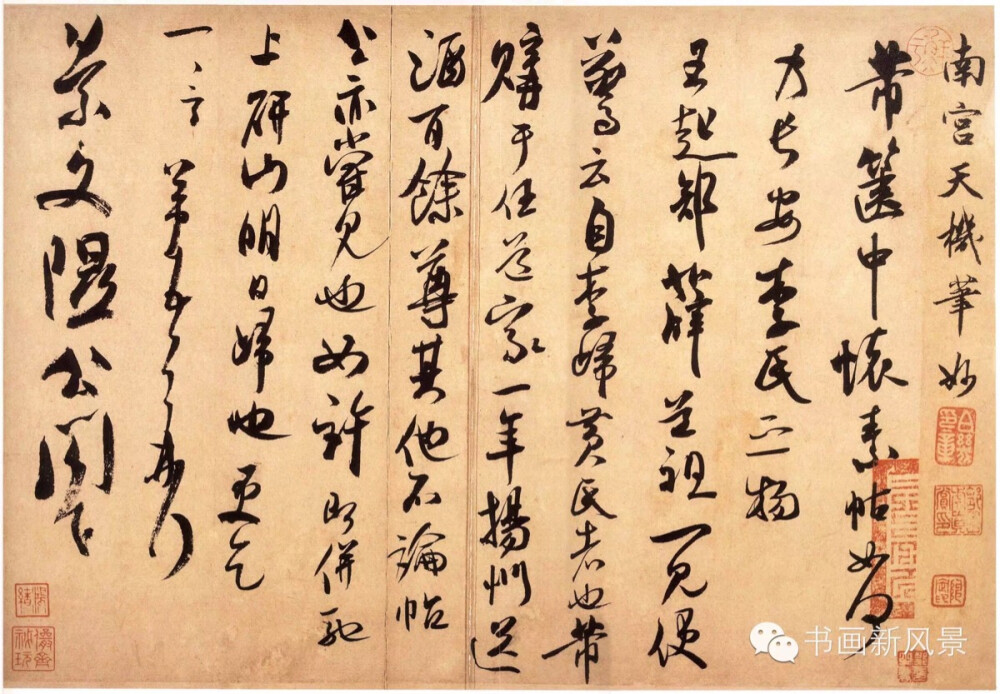 南宮天機筆妙
芾篋中懷素帖如何
乃長安李氏之物
王起部薛道祖一見便
驚云自李歸黃氏者也芾
購于任道家一年揚州送
酒百餘尊其他不論帖
公亦嘗見也如許即併馳
上研山明日歸也更乞
一言芾頓首再拜
景文隰公閣下
书画新风景